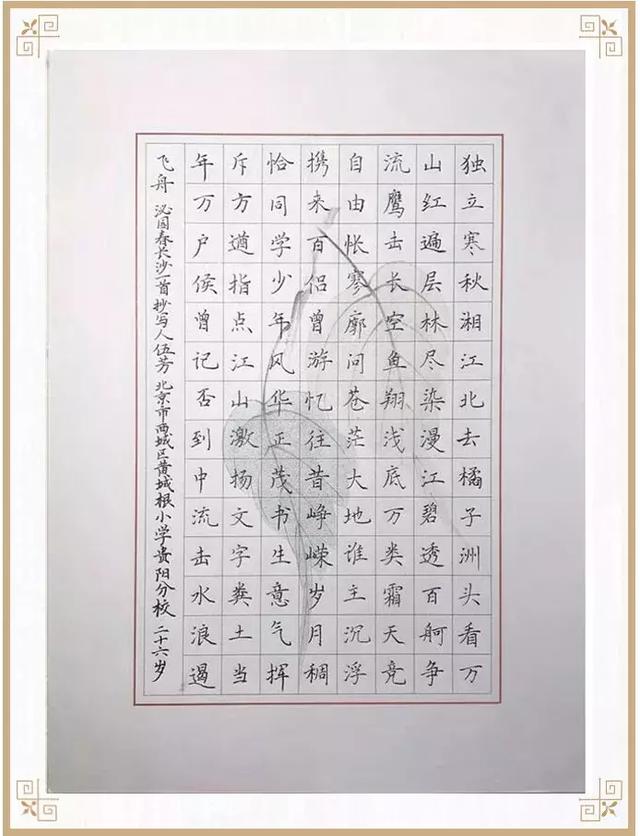 独立寒秋湘江北去橘子洲头看万
山红遍层林尽染漫江碧透百舸争
流鹰击长空鱼翔浅底万类霜天竞
自由怅寥廓问苍茫大地谁主沉浮
携来百侣曾游忆往昔峥嵘岁月稠
恰同学少年风华正茂书生意气挥
斥方遒指点江山激扬文字粪土当
年万户侯曾记否到中流击水浪遏
飞舟 沁园春长沙一首抄写人伍芳 北京市西城区黄城根小学贵阳分校 二十六岁